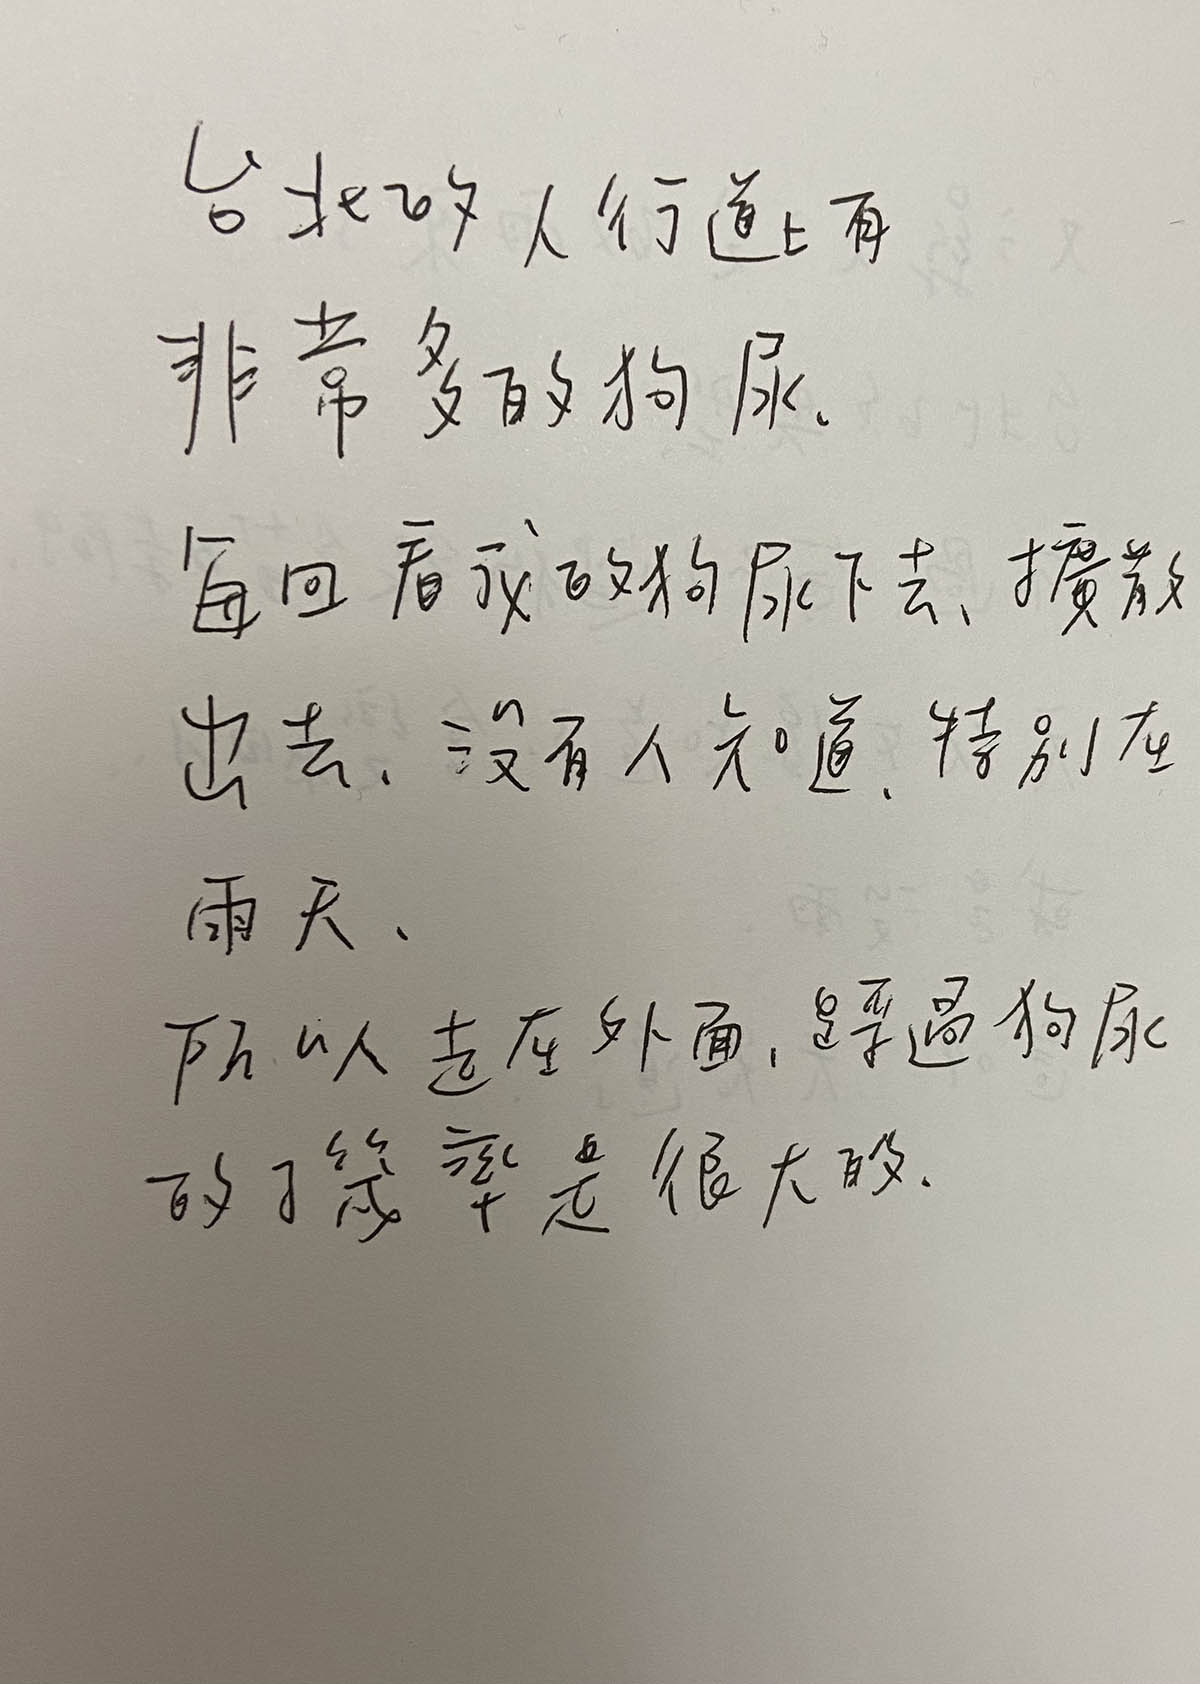 台北的人行道上有
非常多的狗尿、
每回看我的狗尿下去、擴散
出去、沒有人知道、特別在
雨天、
所以走在外面、踩過狗尿
的了幾率是很大的、